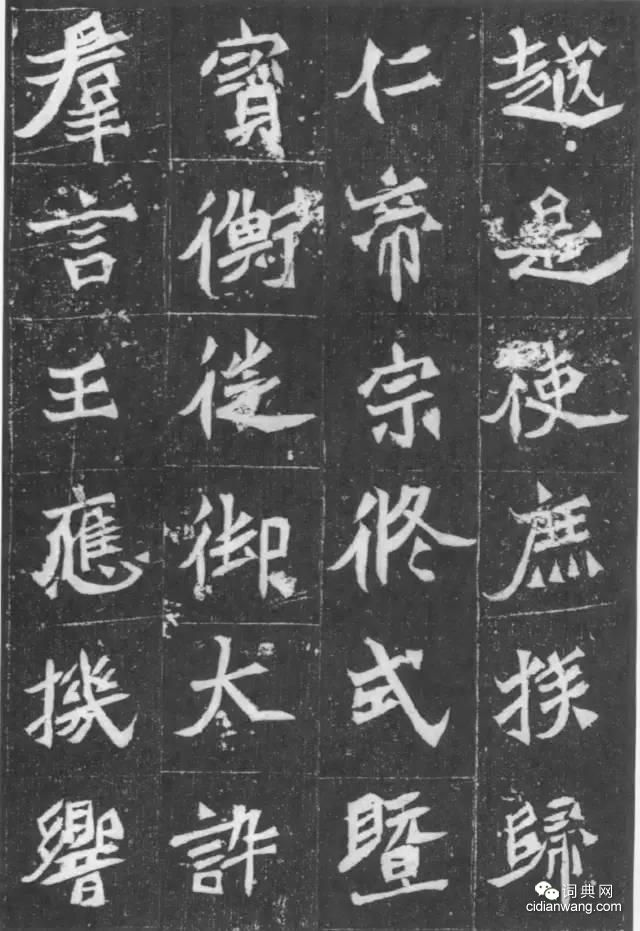 越是使庶族歸
仁帝宗攸式暨
寶衡徙御大許
羣言王應機響
词典网
cidianwang.com